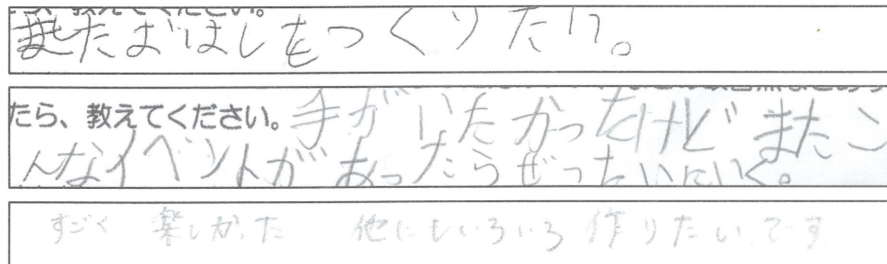 またおはしをつくりたい。
たら、教えてください。手がいたかったけどまたこ
んなイベントがあったらぜったいにいく。
すごく 楽しかった 他にもいろいろ作りたいです